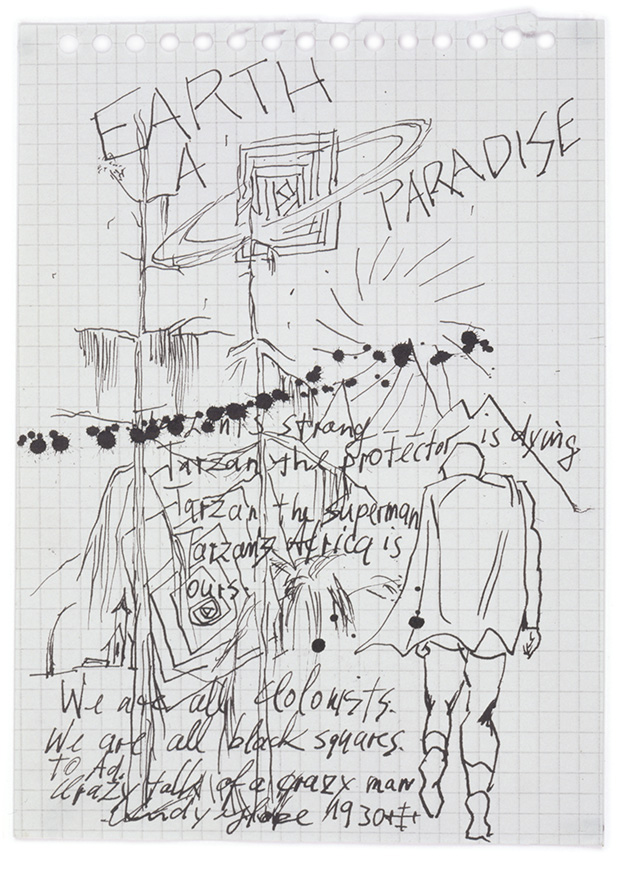 EARTH
A
PARADISE
is strang
Tarzan the protector is dying
Tarzan the superman
Tarzans Africa is
ours.
We are all Colonists.
We are all black squares.
To Ad.
Crazy talk of a crazy man
1930